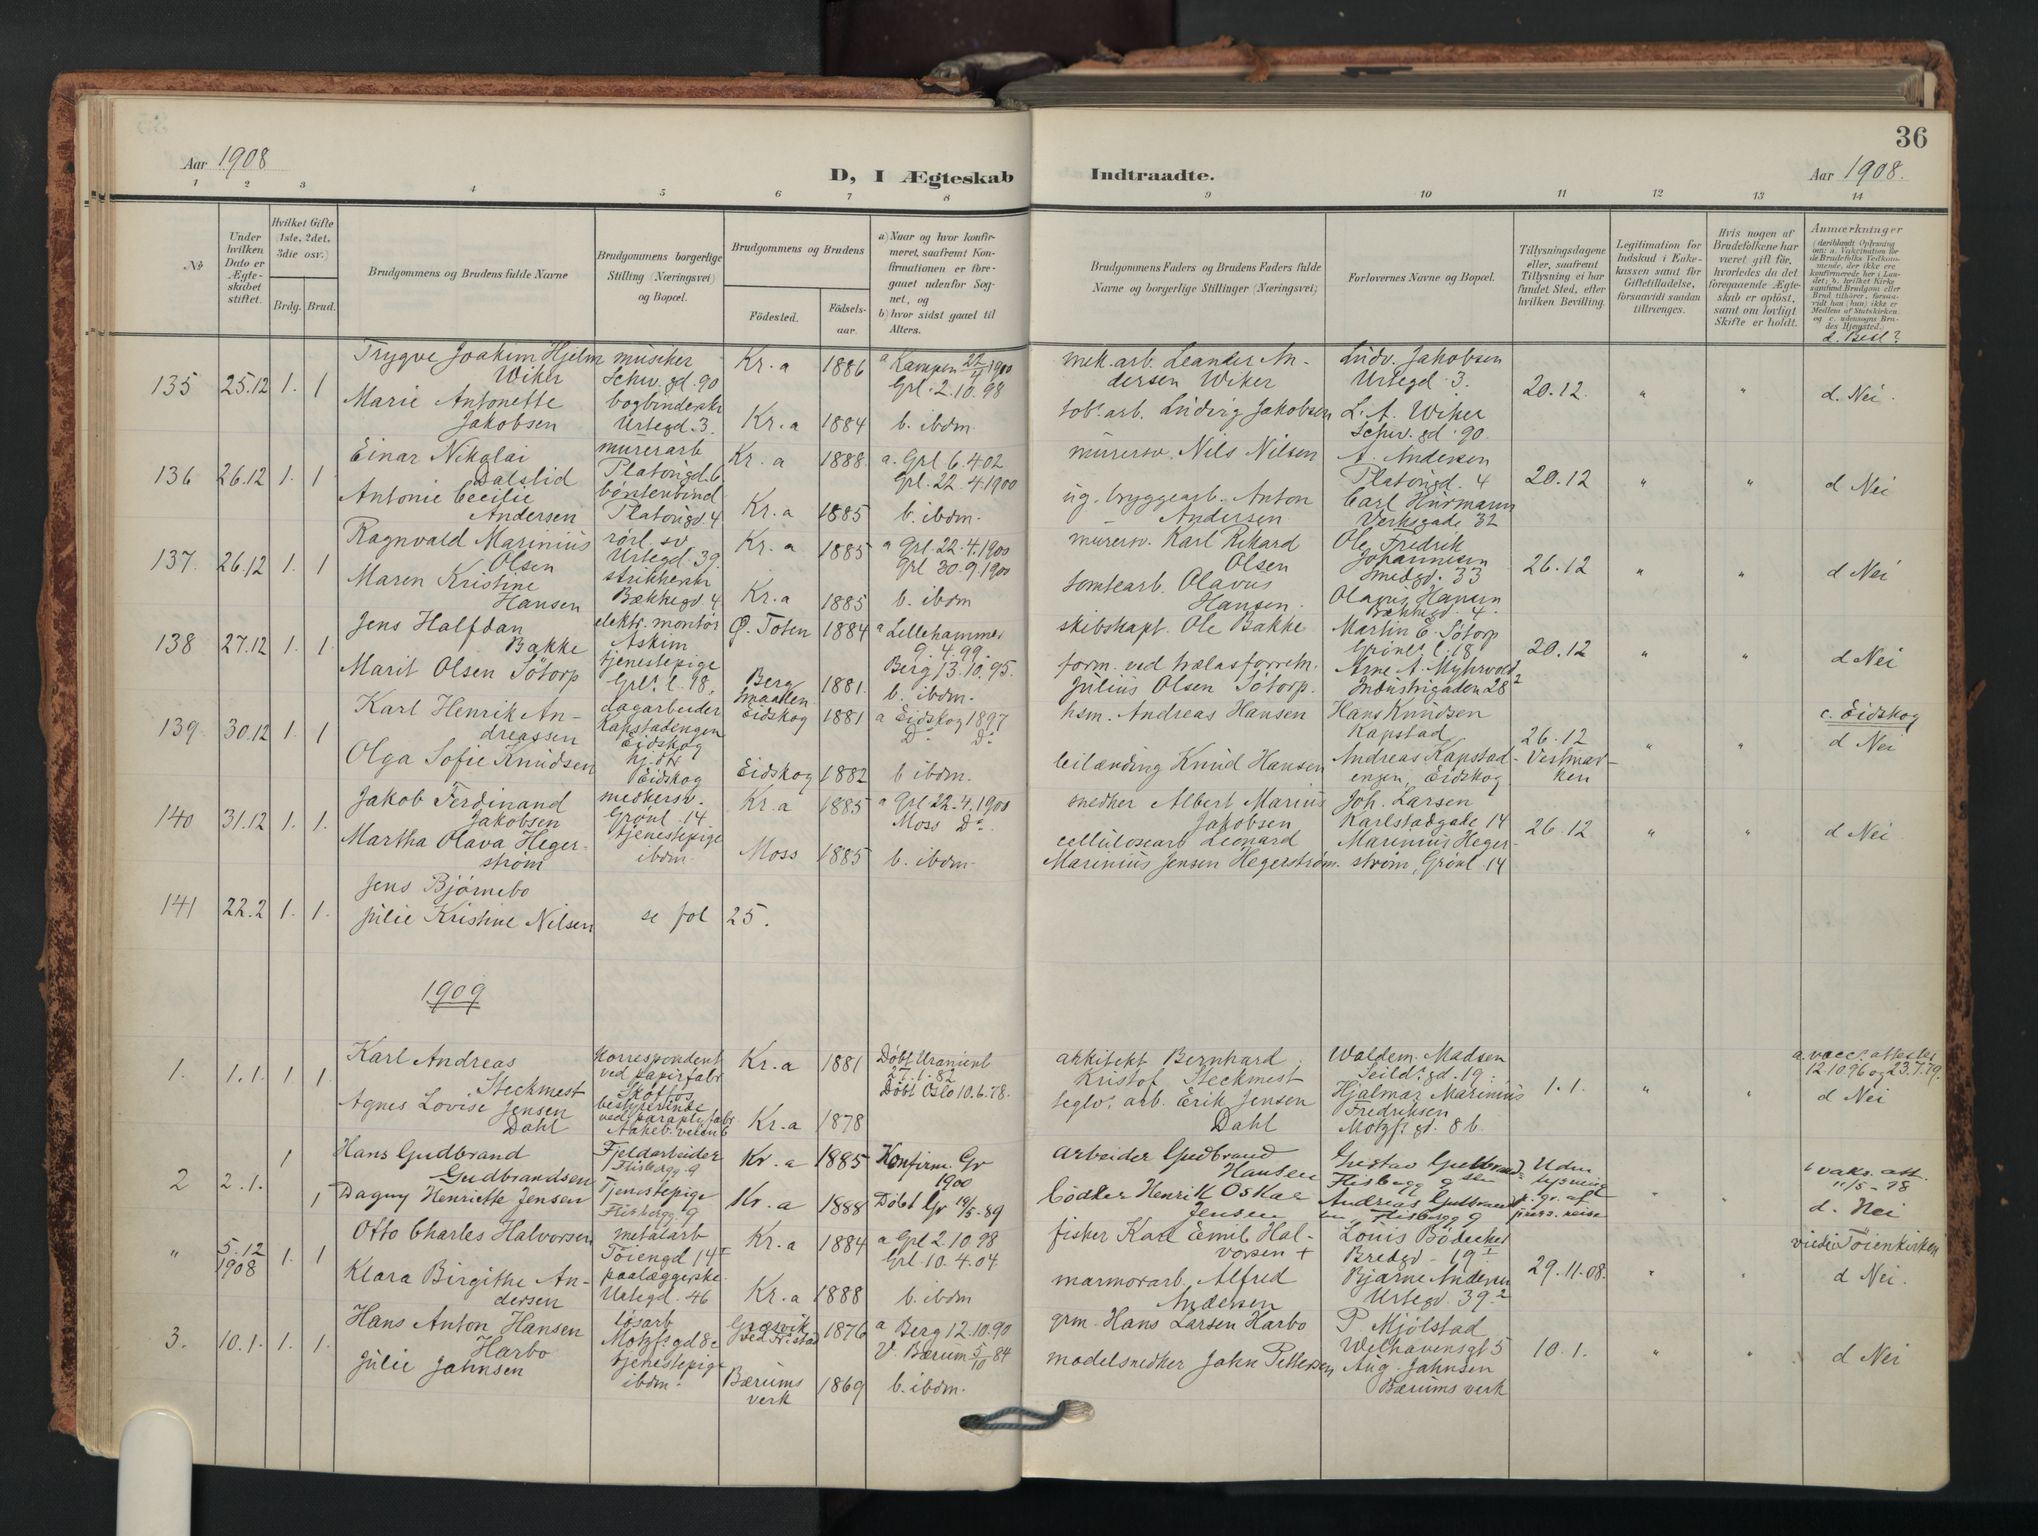 Aar 1908
D, I Ægteskab
Indtraadte.
Aar 1908.
36
1 2 3 4 5 6 7 8 9 10 11 12 13 14
No
Under hvilken Dato er Ægteskabet stiftet.
Hvilket Gifte (1ste, 2det, 3die osv.)
Brdg. Brud.
Brudgommens og Brudens fulde Navne
Brudgommens borgerlige Stilling (Næringsvei) og Bopæl.
Brudgommens og Brudens
Fødested.
Fødselsaar.
a) Naar og hvor konfirmeret, saafremt Konfirmationen er foregaaet udenfor Sognet, og
b) hvor sidst gaaet til Alters.
Brudgommens Faders og Brudens Faders fulde Navne og borgerlige Stillinger (Næringsvei)
Forlovernes Navne og Bopæl.
Tillysningsdagene eller, saafremt Tillysning ei har fundet Sted, efter hvilken Bevilling.
Legitimation for Indskud i Enkekassen samt for Giftetilladelse, forsaavidt saadan tiltrænges.
Hvis nogen af Brudefolkene har været gift før, hvorledes da det foregaaende Ægteskab er opløst, samt om lovligt Skifte er holdt.
Anmærkninger
(deriblandt Oplysning om: a. Vakcination for de Brudefolks Vedkommende, der ikke ere konfirmerede her i Landet; b. hvilket Kirkesamfund Brudgom eller Brud tilhører, forsaavidt han (hun) ikke er Medlem af Statskirken og c. udensogns Brudes Hjemsted.)
d. Besl?
135 25.12 1. 1 Trygve Joakim Hjelm Wiker
musiker Schw. gd. 90 Kr.a 1886 a Kampen 22/4 1900
mek. arb. Leander Andersen Wiker Ludv. Jakobsen Urtegd. 3. 20.12. " " d. Nei.
Marie Antonette Jakobsen
bogbinderske Urtegd. 3. Kr.a 1884 Grl. 2.10.98 b. ibdm.
tob. arb. Ludvig Jakobsen L. A. Wiker Schw. gd. 90.
136 26.12 1. 1 Einar Nikolai Dalslid
murerarb Platousgd. 6 Kr.a 1888. a. Grl 6.4.02
murersv. Nils Nilsen A. Andersen Platousgd. 4 20.12 " " d Nei
Antonie Cecilie Andersen
børstenbind Platousgd. 4 Kr.a 1885 Grl. 22.4.1900 b. ibdm.
ug. bryggearb. Anton Andersen Carl Hurmann Verksgade 32
137. 26.12 1. 1 Ragnvald Marinius Olsen
rørl. sv Urtegd. 39. Kr.a 1885 a Grl. 22.4.1900
murersv. Karl Rikard Olsen Ole Fredrik Johannesen Smedgd. 33 26.12 " " d Nei
Maren Kristine Hansen
strikkerske Bækkegd. 4 Kr.a 1885 Grl 30.9.1900 b. ibdm
tomtearb. Olavus Hansen. Olavus Hansen Bækkegd. 4.
138 27.12 1. 1. Jens Halfdan Bakke
elektr. montør Askim Ø. Toten 1884 a Lillehammer 9.4.99.
skibskapt. Ole Bakke Martin E. Søtorp Grønl. l. 18 20.12 " " d Nei
Marit Olsen Søtorp
tjenestepige Grl. l. 18, Berg Smaalen 1881. Berg 13.10.95. b. ibdm.
form. ved trælasforretn. Julius Olsen Søtorp. Arne A. Myhrvold Industrigaden 28²
139. 30.12 1. 1 Karl Henrik Andreassen
dagarbeider Kapstadengen Eidskog Eidskog 1881 a Eidskog 1897
hsm. Andreas Hansen Hans Knudsen Kapstad 26.12 Vestmarken " " c. Eidskog d Nei
Olga Sofie Knudsen
hj. dtr Eidskog Eidskog 1882 Do Do b ibdm.
leilænding Knud Hansen Andreas Kapstadengen, Eidskog
140 31.12 1. 1. Jakob Ferdinand Jakobsen
snedkersv. Grønl. 14. Kr.a 1885 a Grl 22.4.1900
snedker Albert Marius Jakobsen Joh. Larsen Karlstadgade 14 26.12. " " d Nei
Martha Olava Hegerstrøm
tjenestepige ibdm. Moss 1885 Moss Do. b. ibdm.
cellulosearb Leonard Marinius Jensen Hegerstrøm. Marinius Hegerstrøm, Grønl. 14
141 22.2 1. 1. Jens Bjørnebo
Julie Kristine Nilsen se fol 25.
1909
1. 1.1. 1 1. Karl Andreas Steckmest
Korrespondent ved papirfabr Skotfos Kr.a 1881 Døbt Uranienb 27.1.82
arkitekt Bernhard Kristof Steckmest Waldem. Madsen Seildgd. 19. 1.1. " " a. vacc. attester 12.10.96 og 23.7.79. d Nei
Agnes Lovise Jensen Dahl
bestyrerinde ved paraplyfabr Aakeb. veien 6 Kr.a 1878 Døbt Oslo 10.6.78.
seglv. arb. Erik Jensen Dahl Hjalmar Marinius Fredriksen Motzfgd. 8 b.
2 2.1. 1 1 Hans Gudbrand Gudbrandsen
Fjeldarbeider Flisbergg 9 Kr.a 1885 Konfirm. Gr 1900
arbeider Gudbrand Hansen Gustav Gulbrandsen Flisbergg 9 Uden lysning p. gr. af pres. reise " " a vaks. att. 11/5-78 d. Nei
Dagny Henriette Jensen
Tjenestepige Flisbergg 9 Kr.a 1888 Døbt Gr 19/5-89
bødker Henrik Oskar Jensen Andreas Flisbergg 9
" 5.12 1908 1. 1 Otto Charles Halvorsen
metalarb Tøiengd 14 I Kr.a 1884 a Grl 2.10.98
fisker Karl Emil Halvorsen + Louis Bødecker Bredgd. 19 I 29.11.08. " " viede i Tøienkirken d Nei.
Klara Birgithe Andersen
paalæggerske. Urtegd. 46 Kr.a 1888 Grl. 10.4.04. b. ibdm
marmorarb. Alfred Andersen Bjarne Andersen Urtegd. 39.²
3. 10.1. 1. 1. Hans Anton Hansen Harbo
løsarb Motzfsgd 8 c Græsvik ved Fr.stad 1876 a Berg 12.10.90
grm. Hans Larsen Harbo P Mjølstad Welhavensgt 5 10.1. " " d Nei
Julie Jahnsen
tjenestepige ibdm. Bærums verk 1869 V. Bærum 5/10 84 b. ibdm.
modelsnedker Jahn Pettersen Aug. Jahnsen Bærums verk